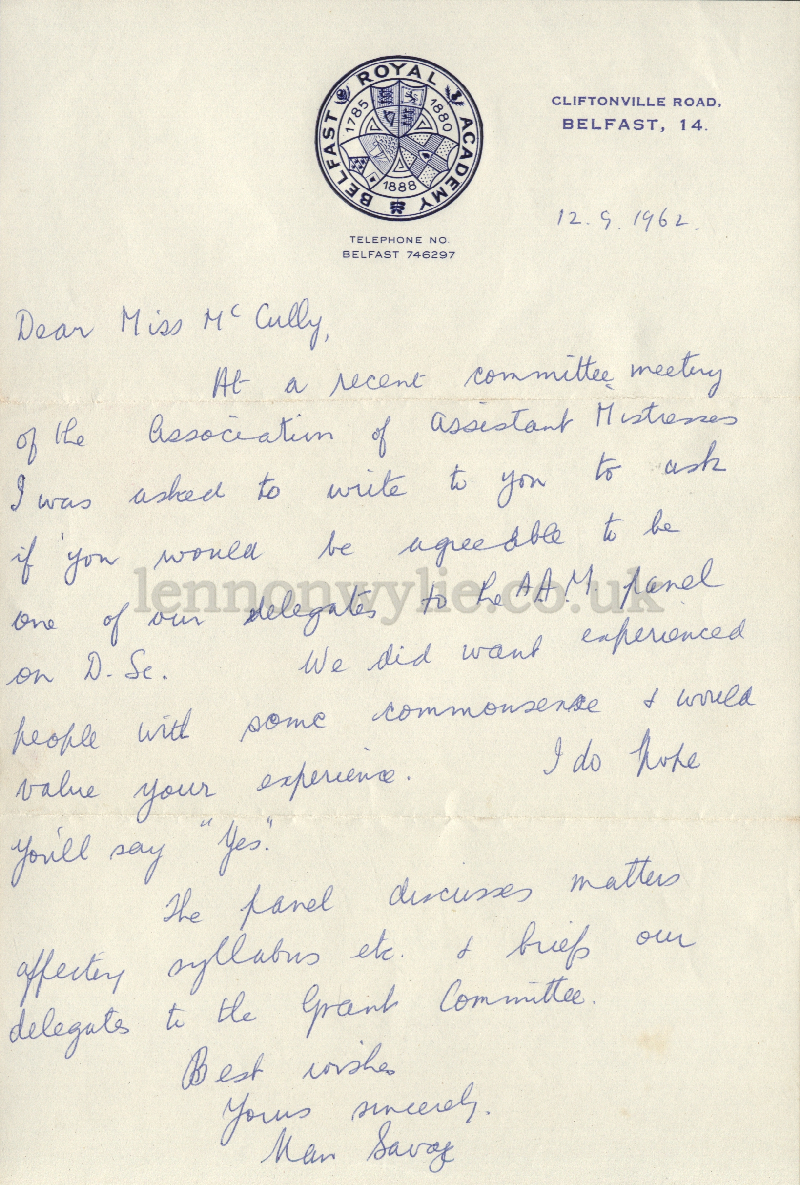 BELFAST ROYAL ACADEMY
1785 1880
1888
CLIFTONVILLE ROAD,
BELFAST, 14.
TELEPHONE NO.
BELFAST 746297
12. 9. 1962.
Dear Miss McCully,
At a recent committee meeting
of the Association of Assistant Mistresses
I was asked to write to you to ask
if you would be agreeable to be
one of our delegates to the A.A.M panel
lennonwylie.co.uk
on D. Sc. We did want experienced
people with some commonsense & would
value your experience. I do hope
you'll say "Yes".
The panel discusses matters
affecting syllabus etc. & briefs our
delegates to the Grant Committee.
Best wishes
Yours sincerely.
Savage